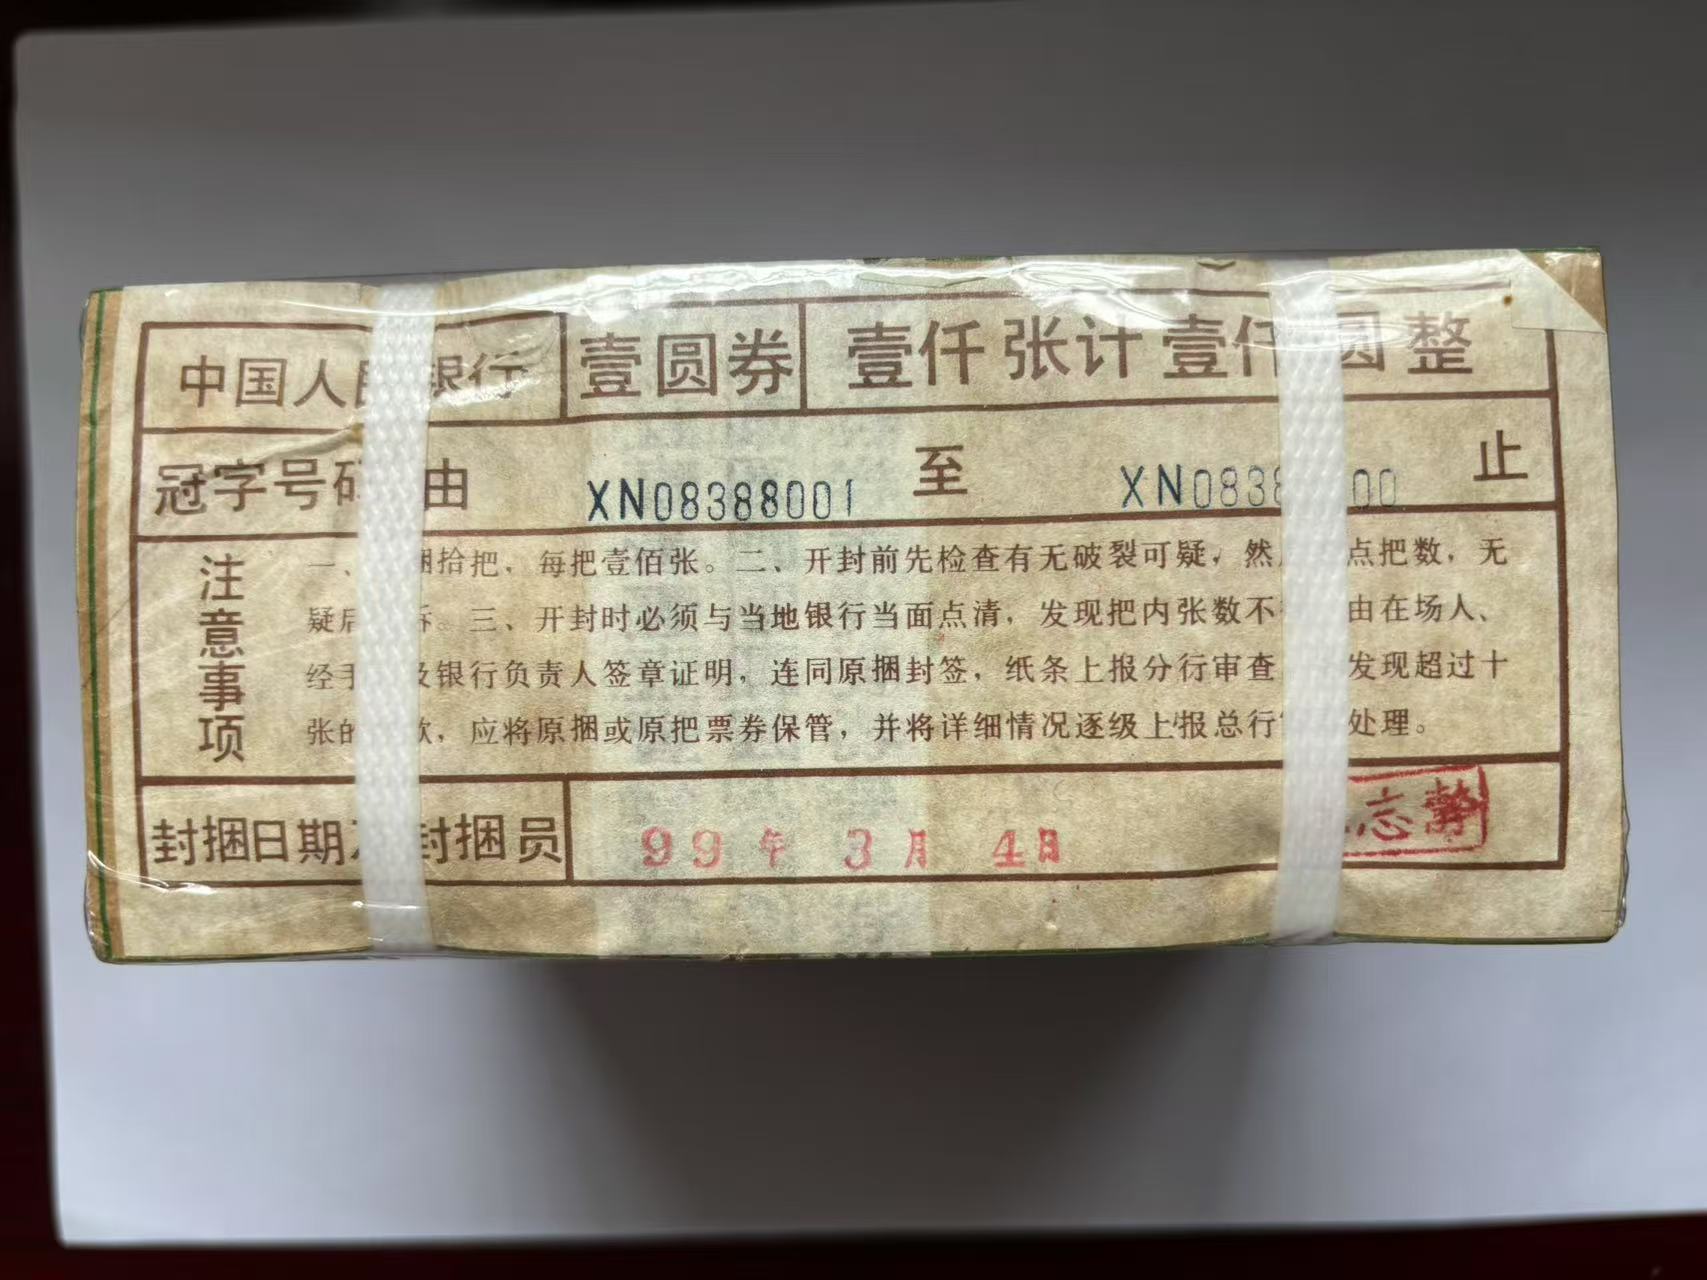 中国人民银行 壹圆券 壹仟张计壹仟圆整
冠字号码 由 XN08388001 至 XN0838 00 止
注意事项
一、 捆拾把，每把壹佰张。二、开封前先检查有无破裂可疑，然 点把数，无
疑后 拆。三、开封时必须与当地银行当面点清，发现把内张数不 由在场人、
经手 及银行负责人签章证明，连同原捆封签，纸条上报分行审查 发现超过十
张的 款，应将原捆或原把票券保管，并将详细情况逐级上报总行 处理。
封捆日期及封捆员 99年3月4日 志